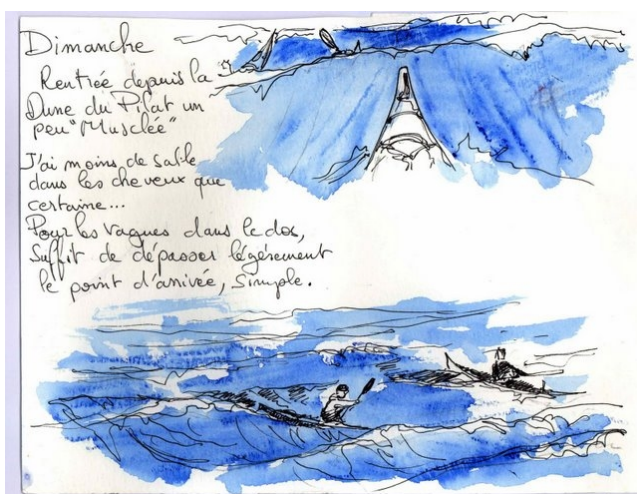 Dimanche
Rentrée depuis la
Dune du Pilat un
peu "Musclée"
J'ai moins de sable
dans les cheveux que
certaine...
Pour les vagues dans le dos,
Suffit de dépasser légèrement
le point d'arrivée, Simple.